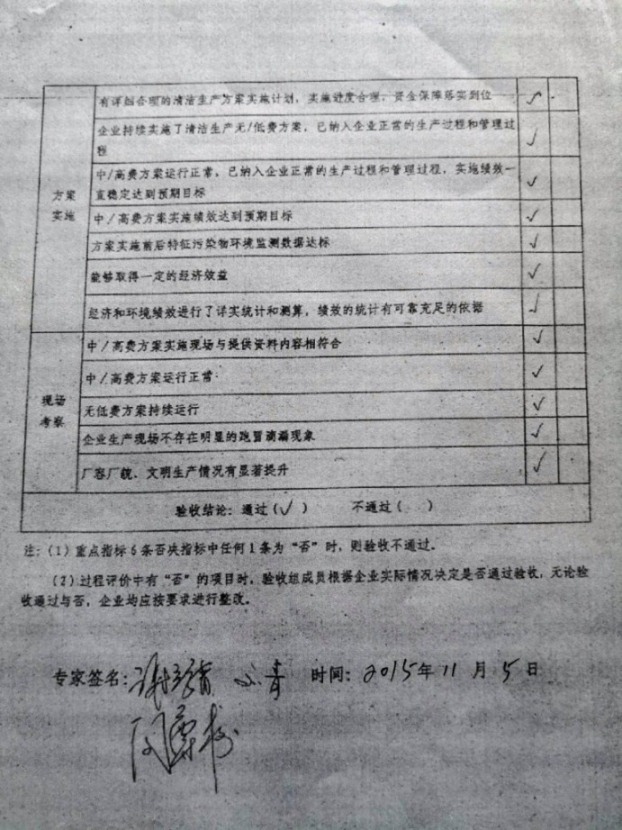 有详细合理的清洁生产方案实施计划，实施进度合理，资金保障落实到位 ✓
企业持续实施了清洁生产无/低费方案，已纳入企业正常的生产过程和管理过
程 ✓
方案
实施
中/高费方案运行正常，已纳入企业正常的生产过程和管理过程，实施绩效一
直稳定达到预期目标 ✓
中/高费方案实施绩效达到预期目标 ✓
方案实施前后特征污染物环境监测数据达标 ✓
能够取得一定的经济效益 ✓
经济和环境绩效进行了详实统计和测算，绩效的统计有可靠充足的依据 ✓
中/高费方案实施现场与提供资料内容相符合 ✓
中/高费方案运行正常 ✓
现场
考察
无低费方案持续运行 ✓
企业生产现场不存在明显的跑冒滴漏现象 ✓
厂容厂貌、文明生产情况有显著提升 ✓
验收结论：通过（✓） 不通过（ ）
注：（1）重点指标6条否决指标中任何1条为“否”时，则验收不通过。
（2）过程评价中有“否”的项目时，验收组成员根据企业实际情况决定是否通过验收，无论验
收通过与否，企业均应按要求进行整改。
专家签名： 时间：2015年11月5日